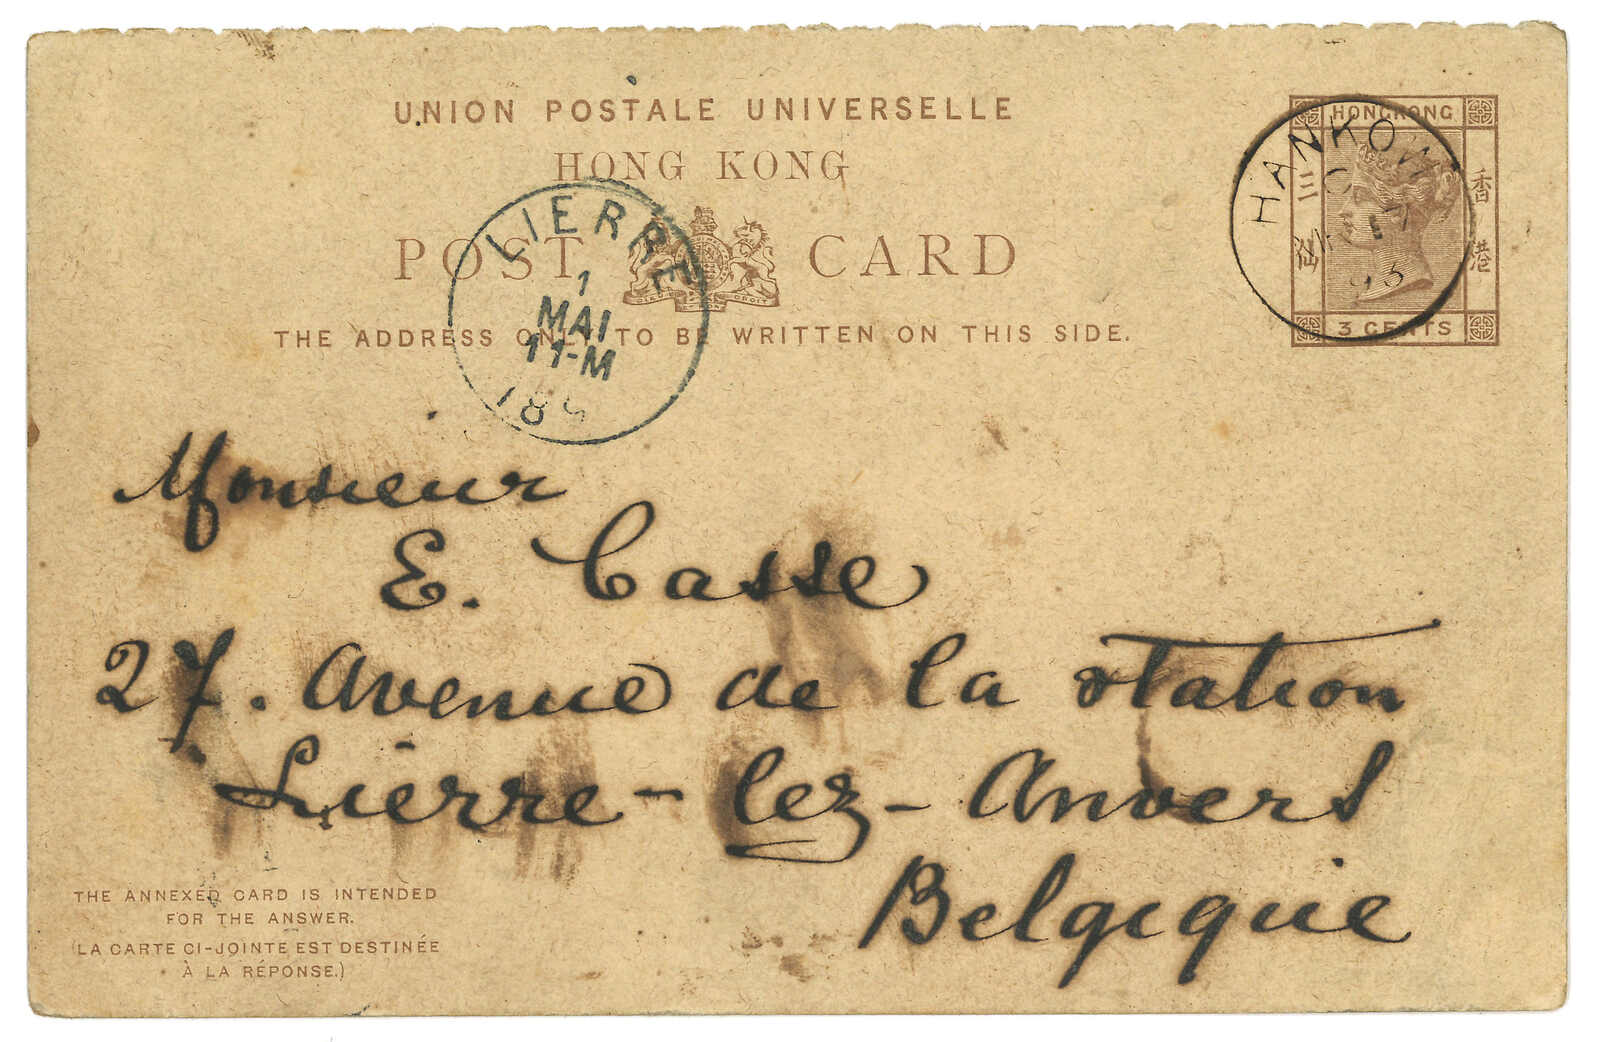 UNION POSTALE UNIVERSELLE
HONG KONG
POST CARD
DIEU ET DROIT
THE ADDRESS ONLY TO BE WRITTEN ON THIS SIDE.
HONGKONG
三仙
香港
3 CENTS
HANKOW
17
LIERRE
1
MAI
11-M
189
Monsieur
E. Casse
27. Avenue de la station
Lierre-lez-Anvers
Belgique
THE ANNEXED CARD IS INTENDED
FOR THE ANSWER.
(LA CARTE CI-JOINTE EST DESTINÉE
À LA RÉPONSE.)